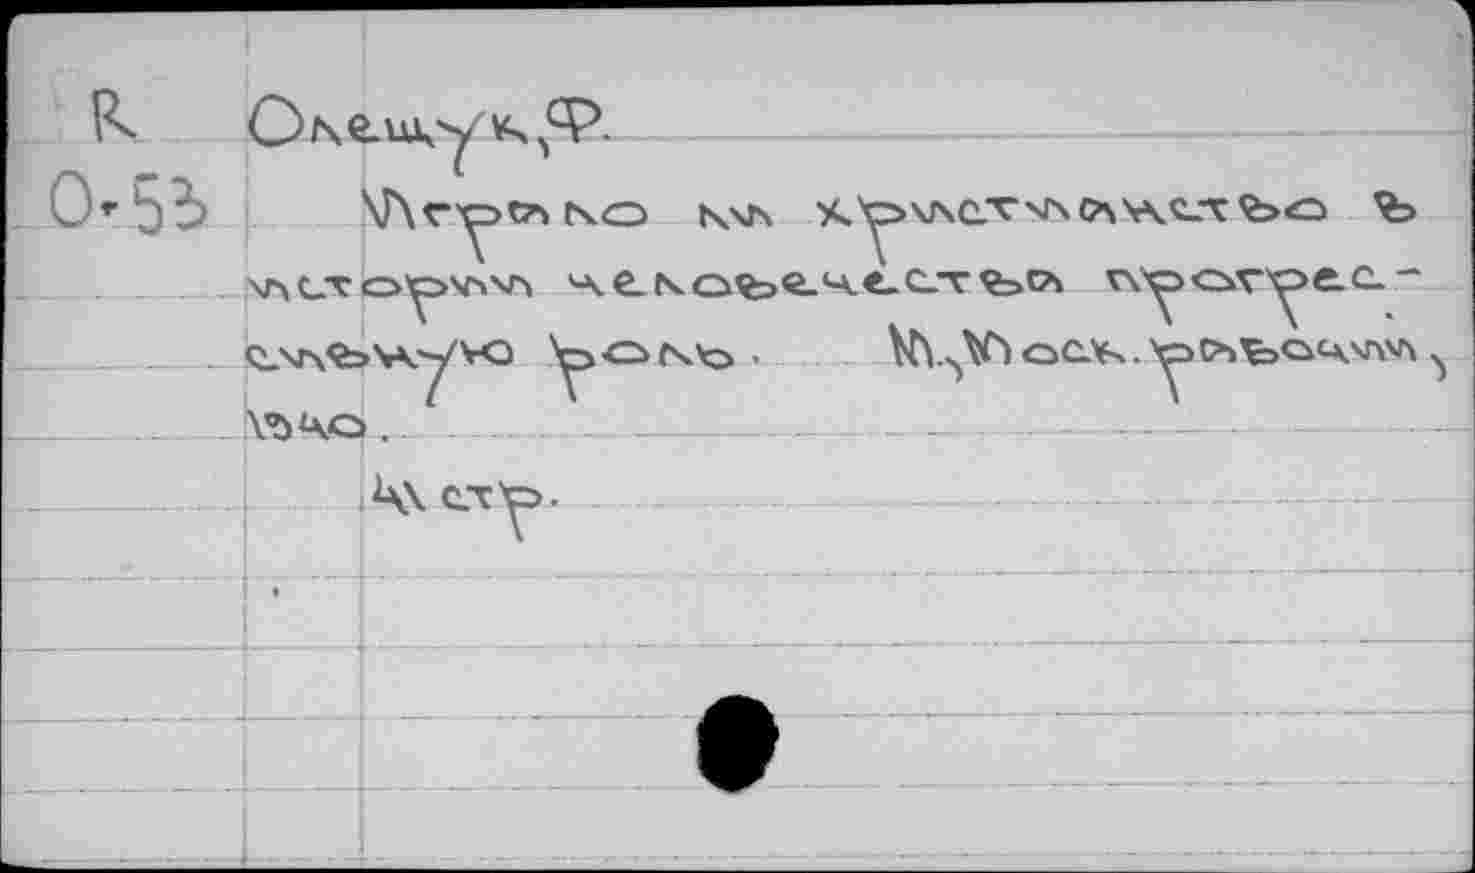 R Олещук, Ф.
О-53 Играло ли христианство в
истории человечества прогрес-
сивную роль. М., Моск. рабочий,
1940.
41 стр.